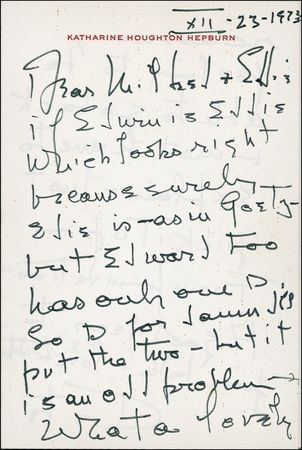 XII - 23-1973
KATHARINE HOUGHTON HEPBURN
Dear Mildred + Eddie
if Edwin is Eddie
which looks right
because surely
Edie is - as in Goetz -
but Edward too
has only one D.
So D for damn I'll
put the two - but it
is an odd problem -
What a lovely